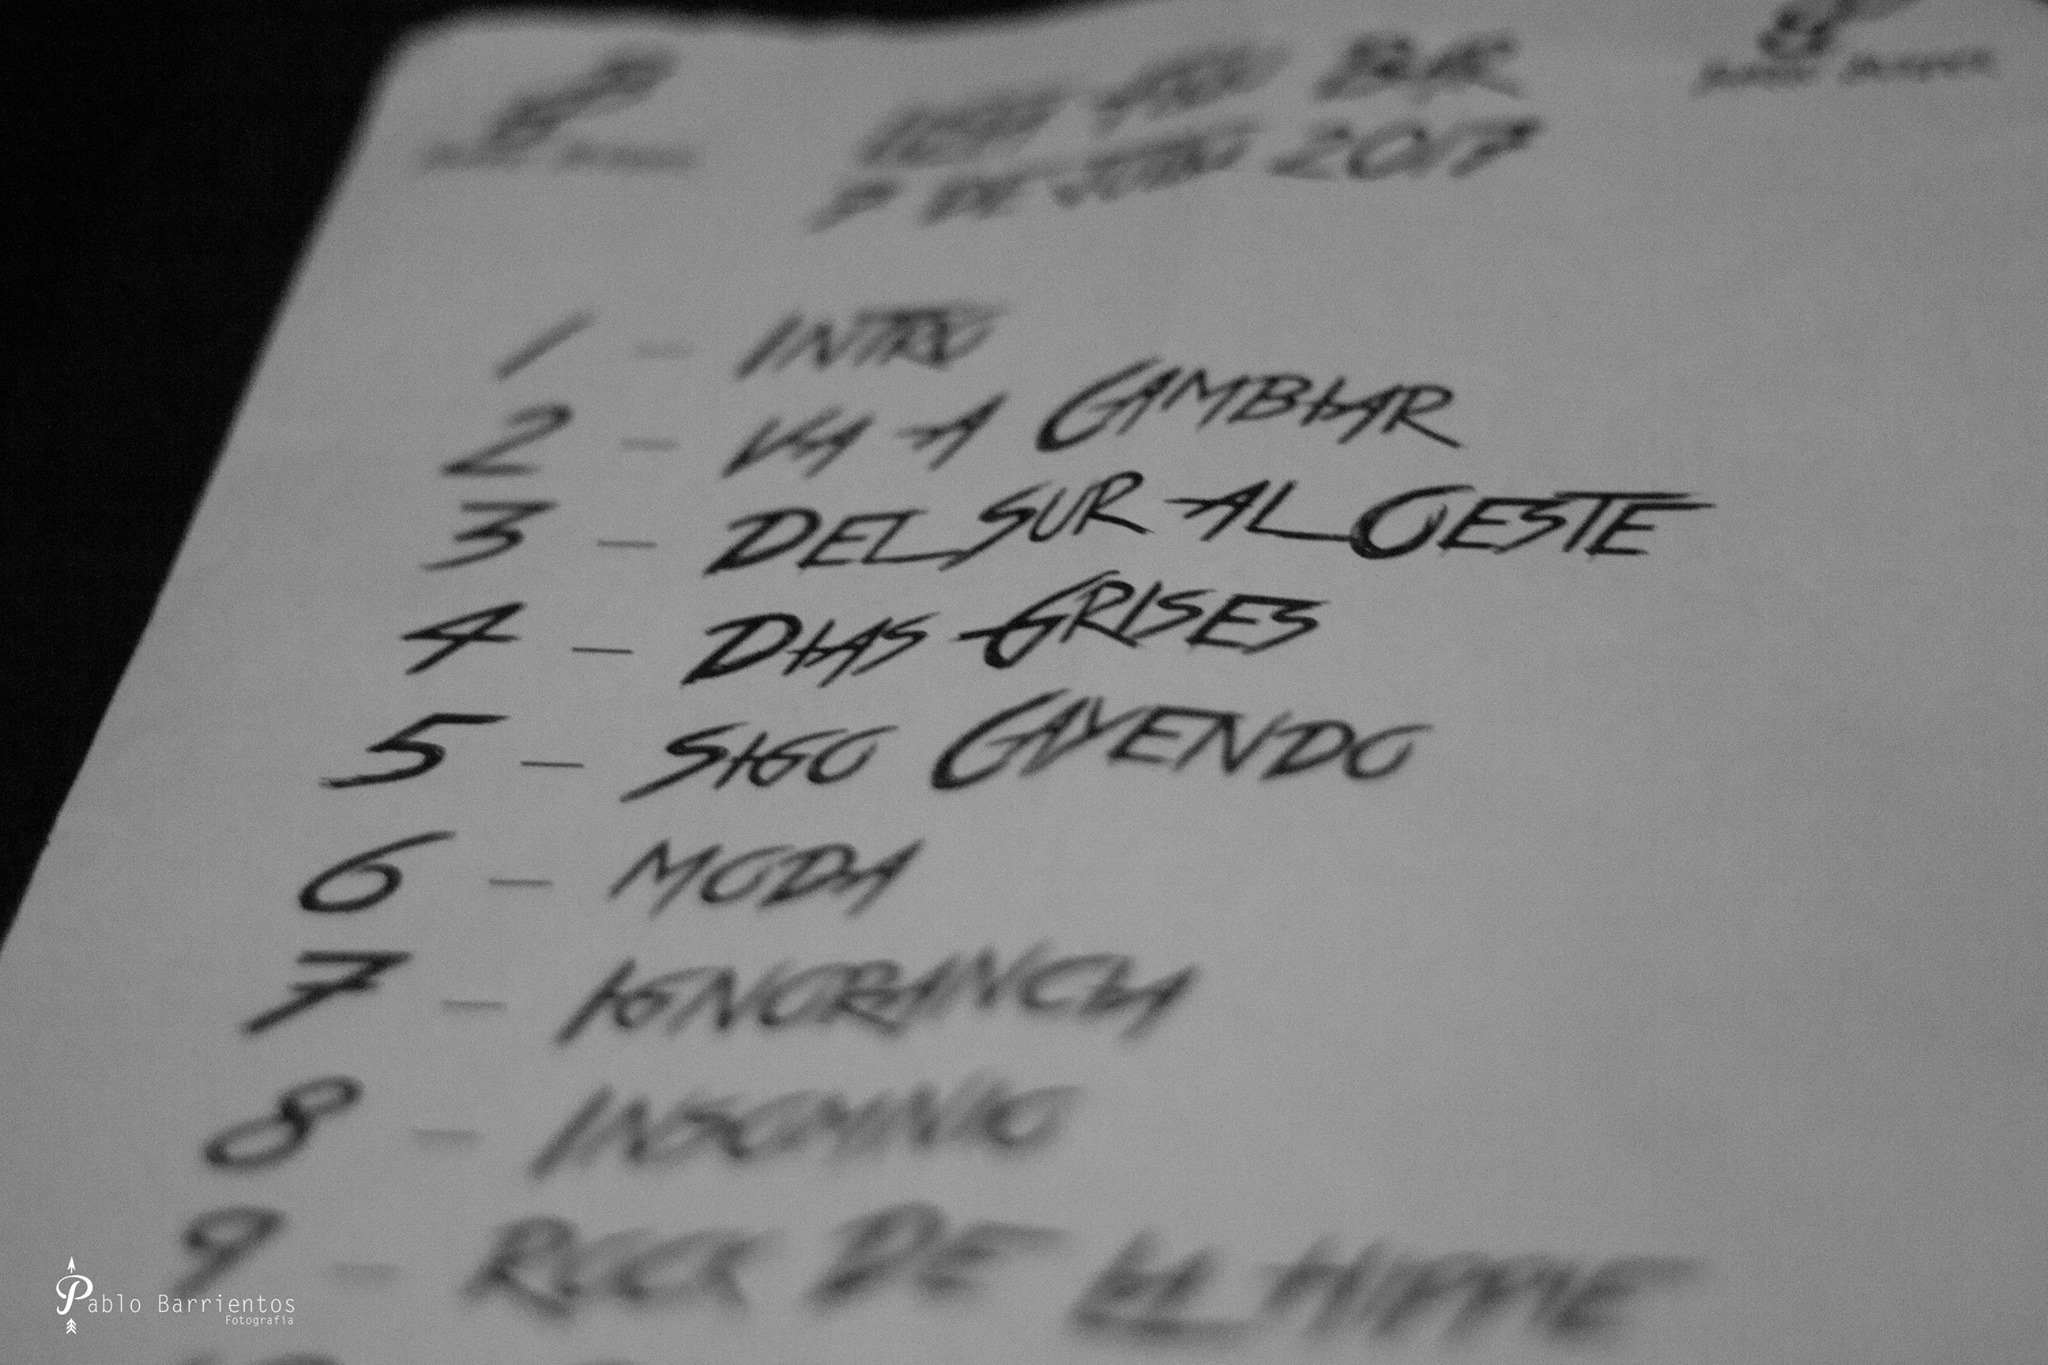 BAR
DE 2017
1 - INTRO
2 - VA A CAMBIAR
3 - DEL SUR AL OESTE
4 - DIAS GRISES
5 - SIGO CAYENDO
6 - MODA
7 - IGNORANCIA
8 - INSOMNIO
9 - ROCK DE LA HIPPIE
Pablo Barrientos
Fotografía